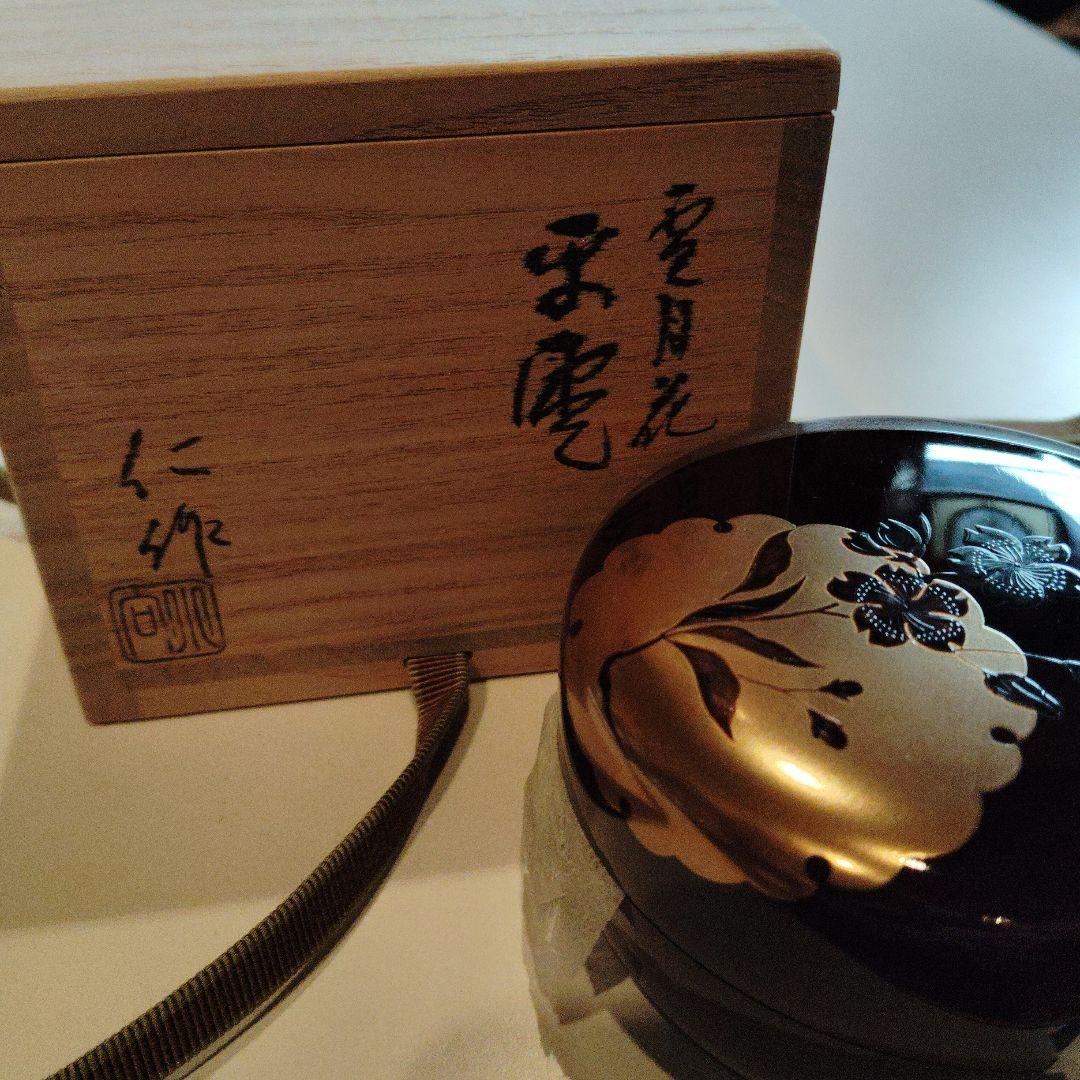 雪月花
平棗
仁作